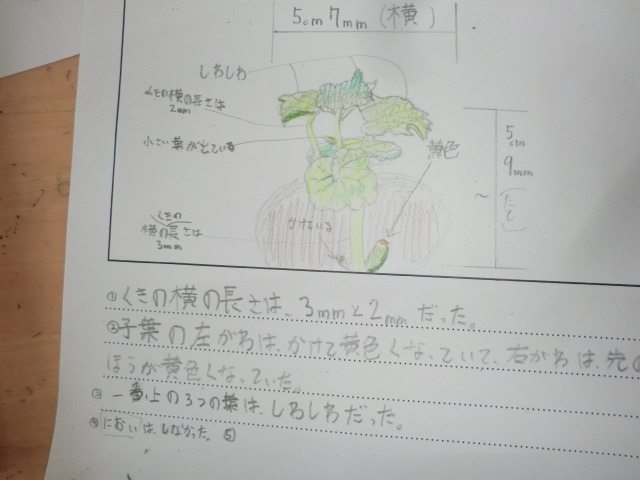 5cm 7mm (横)
しわしわ
くきの横の長さは
2mm
小さい葉が出ている
黄色
5cm
9mm
(たて)
〜
くきの
横の長さは
3mm
かけている
①くきの横の長さは、3mmと2mmだった。
②子葉の左がわは、かけて黄色くなっていて、右がわは、先の
ほうが黄色くなっていた。
③一番上の3つの葉は、しわしわだった。
④においは、しなかった。⑤